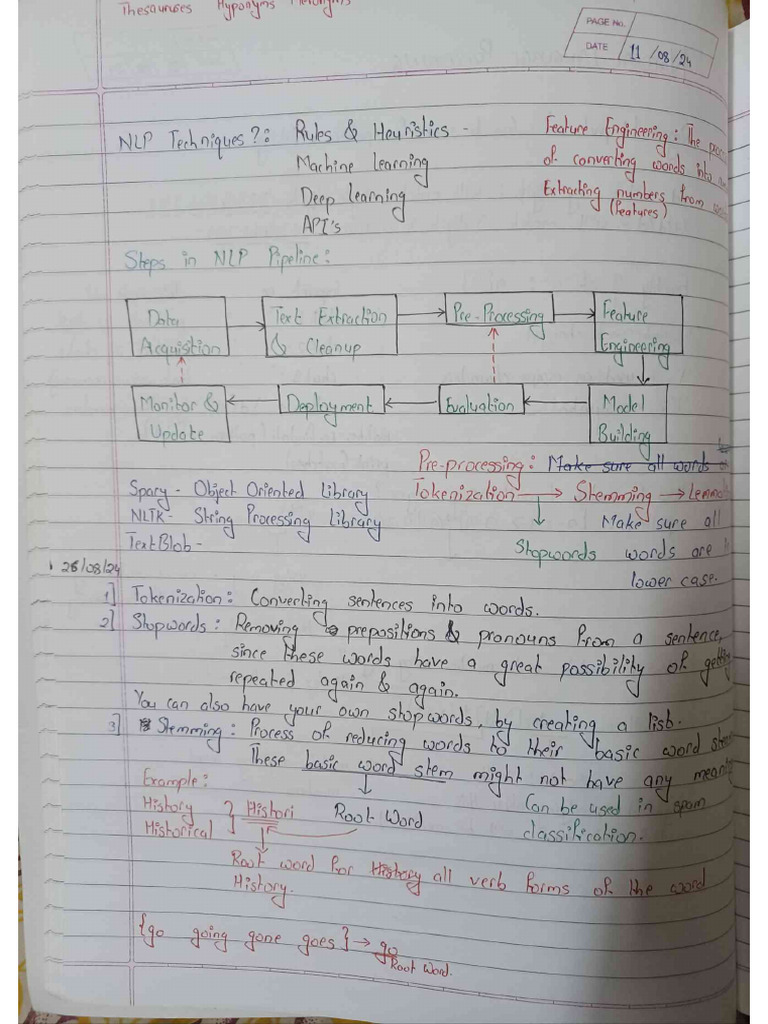 Thesauruses Hyponyms
PAGE No.
DATE 11/08/24
NLP Techniques?: Rules & Heuristics -
Machine learning
Deep learning
API's
Feature Engineering: The
of converting words into
Extracting numbers from
(features)
Steps in NLP Pipeline:
Data Acquisition
Text Extraction & Cleanup
Pre-Processing
Feature Engineering
Monitor & Update
Deployment
Evaluation
Model Building
Pre-processing: Make sure all words
Tokenization → Stemming →
Stopwords
Make sure all
words are
lower case.
Spacy - Object Oriented Library
NLTK - String Processing Library
TextBlob -
28/08/24
1] Tokenization: Converting sentences into words.
2] Stopwords: Removing prepositions & pronouns from a sentence,
since these words have a great possibility of getting
repeated again & again.
You can also have your own stopwords, by creating a list.
3] Stemming: Process of reducing words to their basic word stem
These basic word stem might not have any meaning
Example:
History
Historical } Histori Root Word
Can be used in spam
classification.
Root word for History all verb forms of the word
History.
{go going gone goes} → go
Root Word.